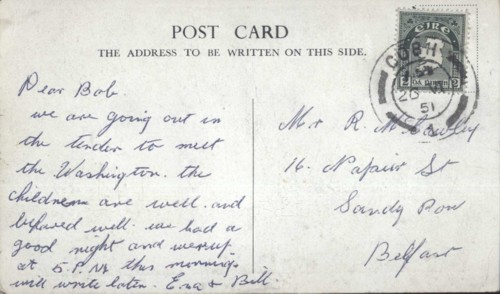 POST CARD
THE ADDRESS TO BE WRITTEN ON THIS SIDE.
EIRE
2 2
COBH
51
Dear Bob.
we are going out in
the tender to meet
the Washington. the
children are well. and
behaved well. we had a
good night and were up
at 5.P.M. this morning
will write later. Ena & Bill.
Mr R. McCauley
16. Napier St
Sandy Row
Belfast